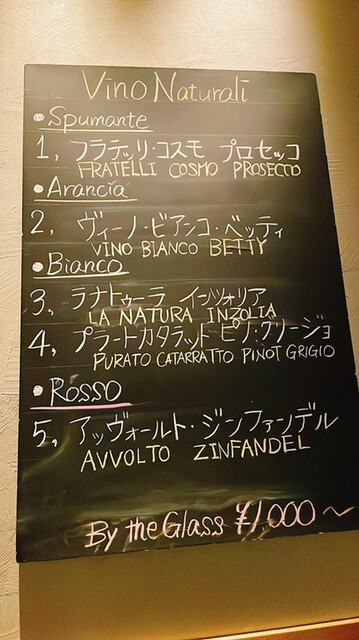 Vino Naturali
•Spumante
1, フラテッリ・コスモ プロセッコ
FRATELLI COSMO PROSECCO
•Arancia
2, ヴィーノ・ビアンコ・ベッティ
VINO BIANCO BETTY
•Bianco
3, ラナトゥーラ インツォリア
LA NATURA INZOLIA
4, プラートカタラット ピノ・グリージョ
PURATO CATARRATTO PINOT GRIGIO
•Rosso
5, アッヴォールト・ジンファンデル
AVVOLTO ZINFANDEL
By the Glass ¥1,000〜